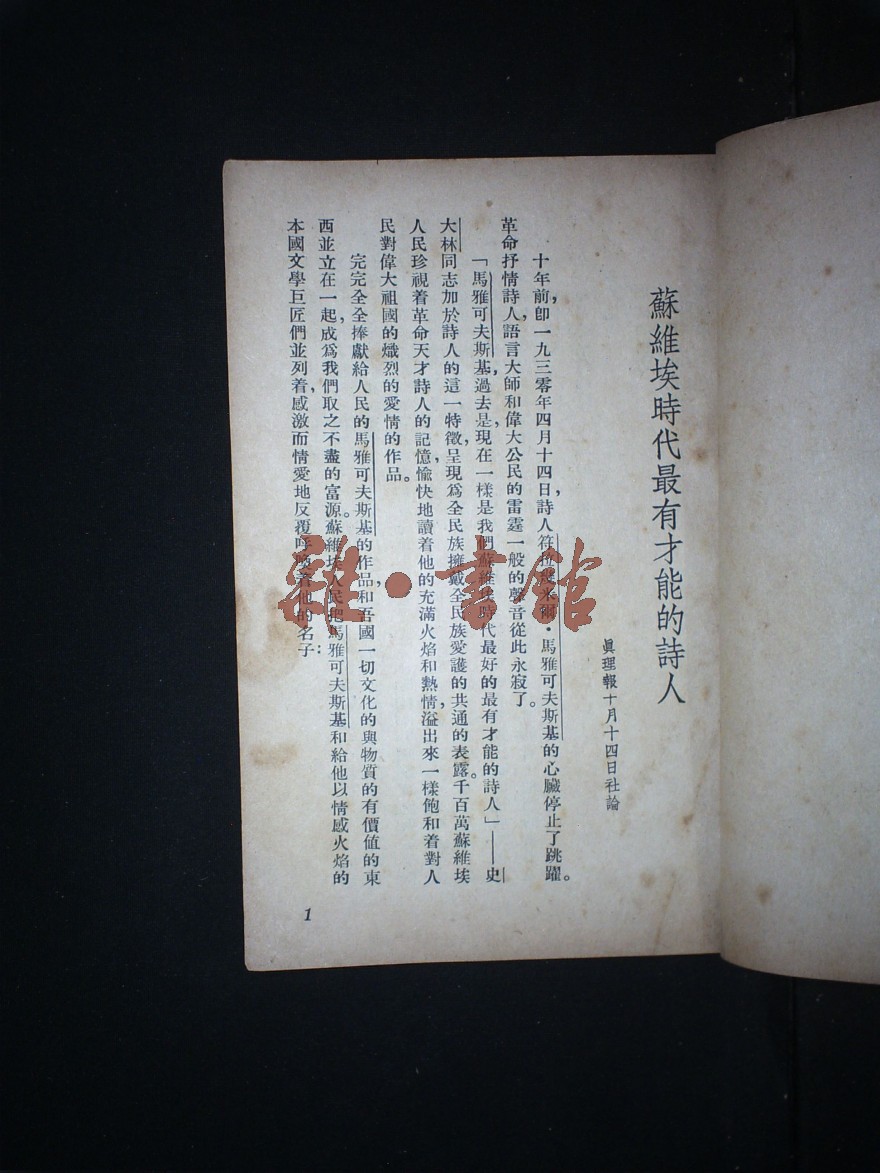 蘇維埃時代最有才能的詩人
眞理報十月十四日社論
十年前，卽一九三零年四月十四日，詩人符拉綫米爾·馬雅可夫斯基的心臟停止了跳躍。
革命抒情詩人，語言大師和偉大公民的雷霆一般的聲音從此永寂了。
「馬雅可夫斯基，過去是，現在一樣是我們蘇維埃時代最好的最有才能的詩人」——史
大林同志加於詩人的這一特徵，呈現爲全民族擁戴全民族愛護的共通的表露。千百萬蘇維埃
人民珍視着革命天才詩人的記憶，愉快地讀着他的充滿火焰和熱情，溢出來一樣飽和着對人
民對偉大祖國的熾烈的愛情的作品。
完完全全捧獻給人民的馬雅可夫斯基的作品，和吾國一切文化的與物質的有價値的東
西並立在一起，成爲我們取之不盡的富源。蘇維埃人民把馬雅可夫斯基和給他以情感火焰的
本國文學巨匠們並列着，感激而情愛地反覆呼喚着他的名子：
1
雜·書館